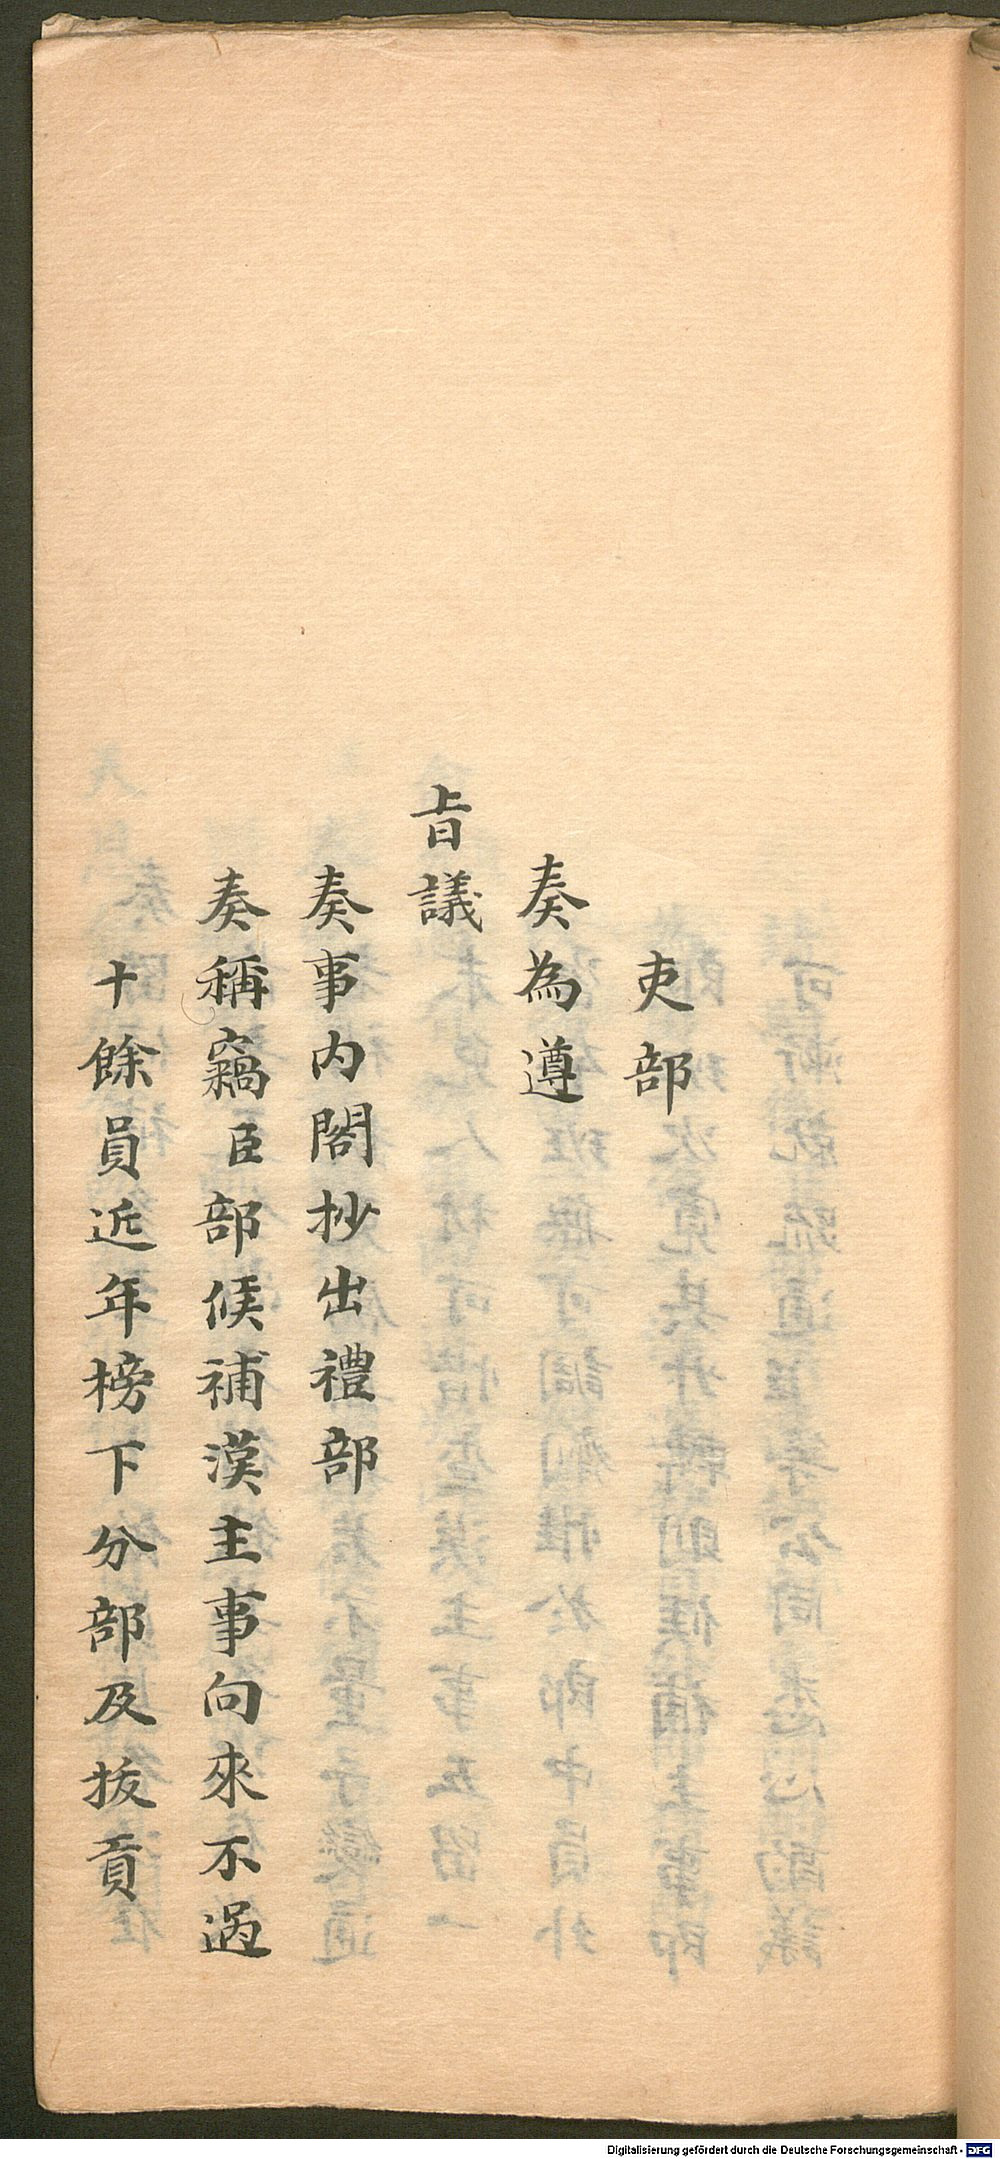 吏部
奏為遵
旨議
奏事内閣抄出禮部
奏稱竊臣部候補漢主事向來不過
十餘員近年榜下分部及拔貢
Digitalisierung gefördert durch die Deutsche Forschungsgemeinschaft - DFG